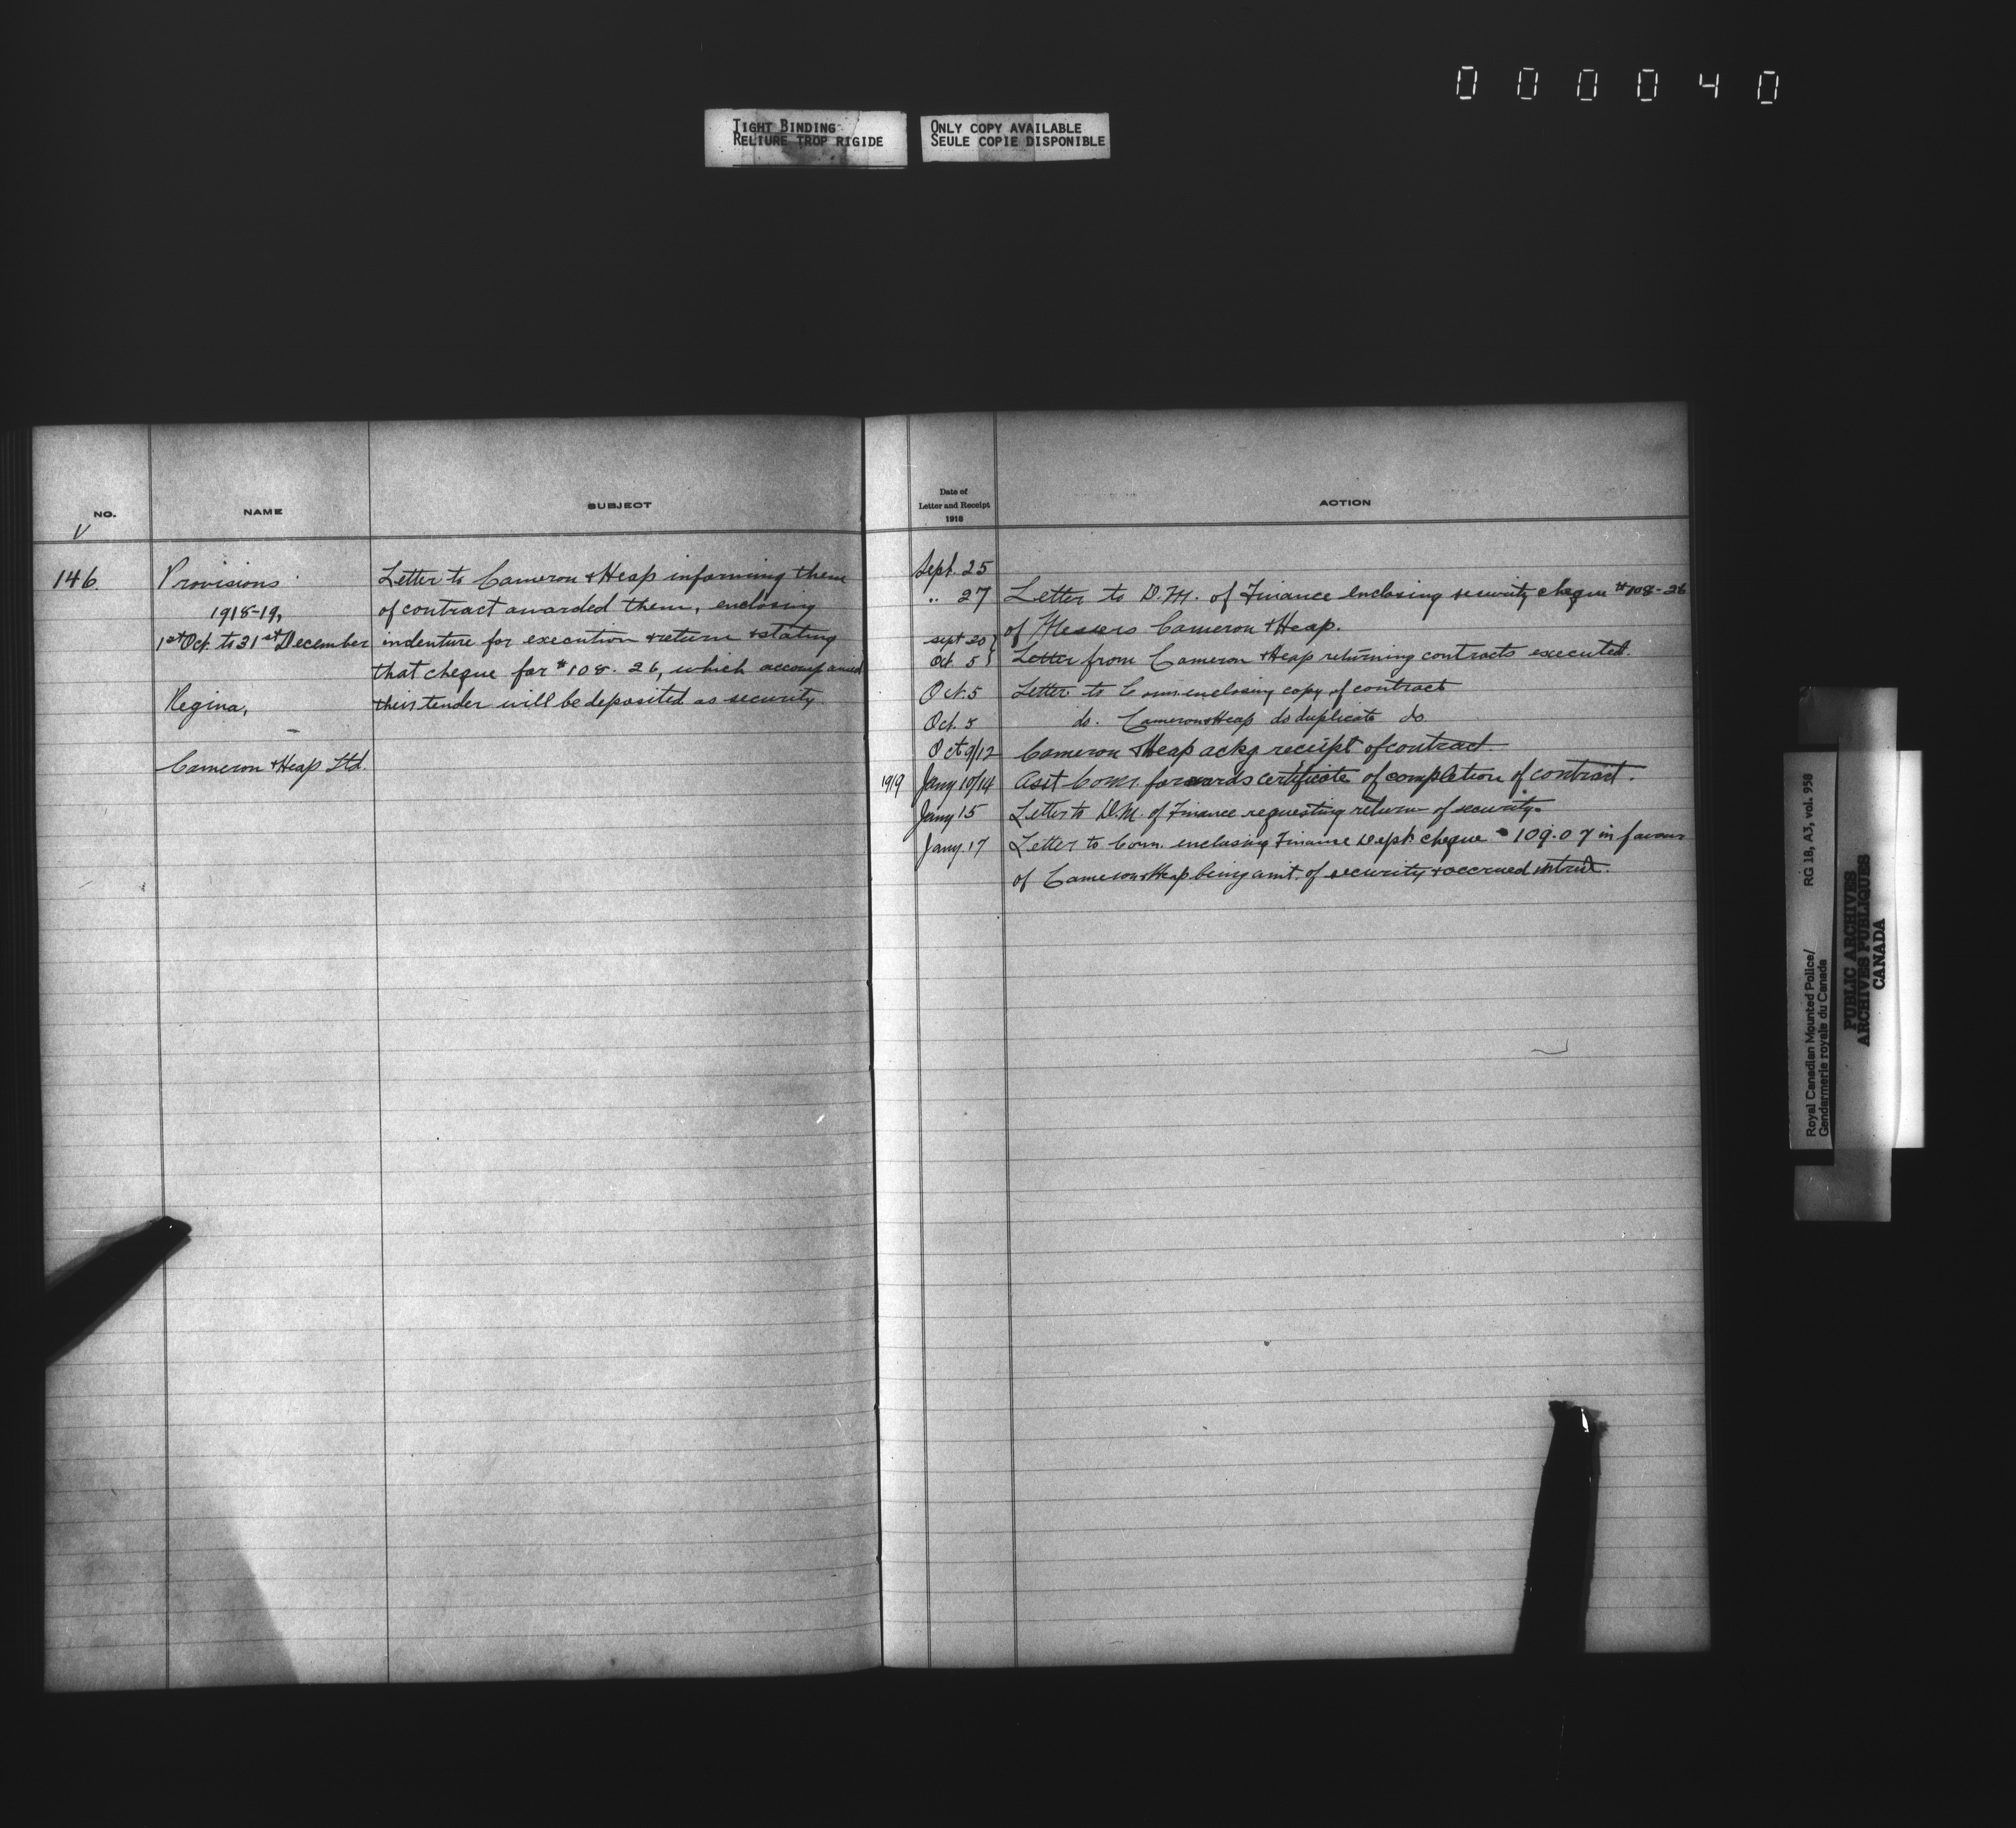 000040
TIGHT BINDING
RELIURE TROP RIGIDE
ONLY COPY AVAILABLE
SEULE COPIE DISPONIBLE
NO.
NAME
SUBJECT
V
146.
Provisions
1918-19,
1st Oct. to 31st December
Regina,
Cameron & Heap Ltd.
Letter to Cameron & Heap informing them
of contract awarded them, enclosing
indenture for execution & return & stating
that cheque for $108.26, which accompanied
their tender will be deposited as security.
Date of
Letter and Receipt
1918
ACTION
Sept. 25
.. 27 Letter to D.M. of Finance enclosing security cheque $108-26
of Messrs Cameron & Heap.
Sept 30
Oct. 5 Letter from Cameron & Heap returning contracts executed.
Oct. 5 Letter to Com. enclosing copy of contract
Oct. 5 do. Cameron & Heap do duplicate do.
Oct 9/12 Cameron & Heap ackg receipt of contract.
1919 Jany 10/14 Asst Comr. forwards certificate of completion of contract.
Jany 15 Letter to D.M. of Finance requesting return of security.
Jany. 17 Letter to Com. enclosing Finance Dept. cheque 109.07 in favour
of Cameron & Heap being amt. of security & accrued intrest.
Royal Canadian Mounted Police/
Gendarmerie royale du Canada
RG 18, A3, vol. 958
PUBLIC ARCHIVES
ARCHIVES PUBLIQUES
CANADA